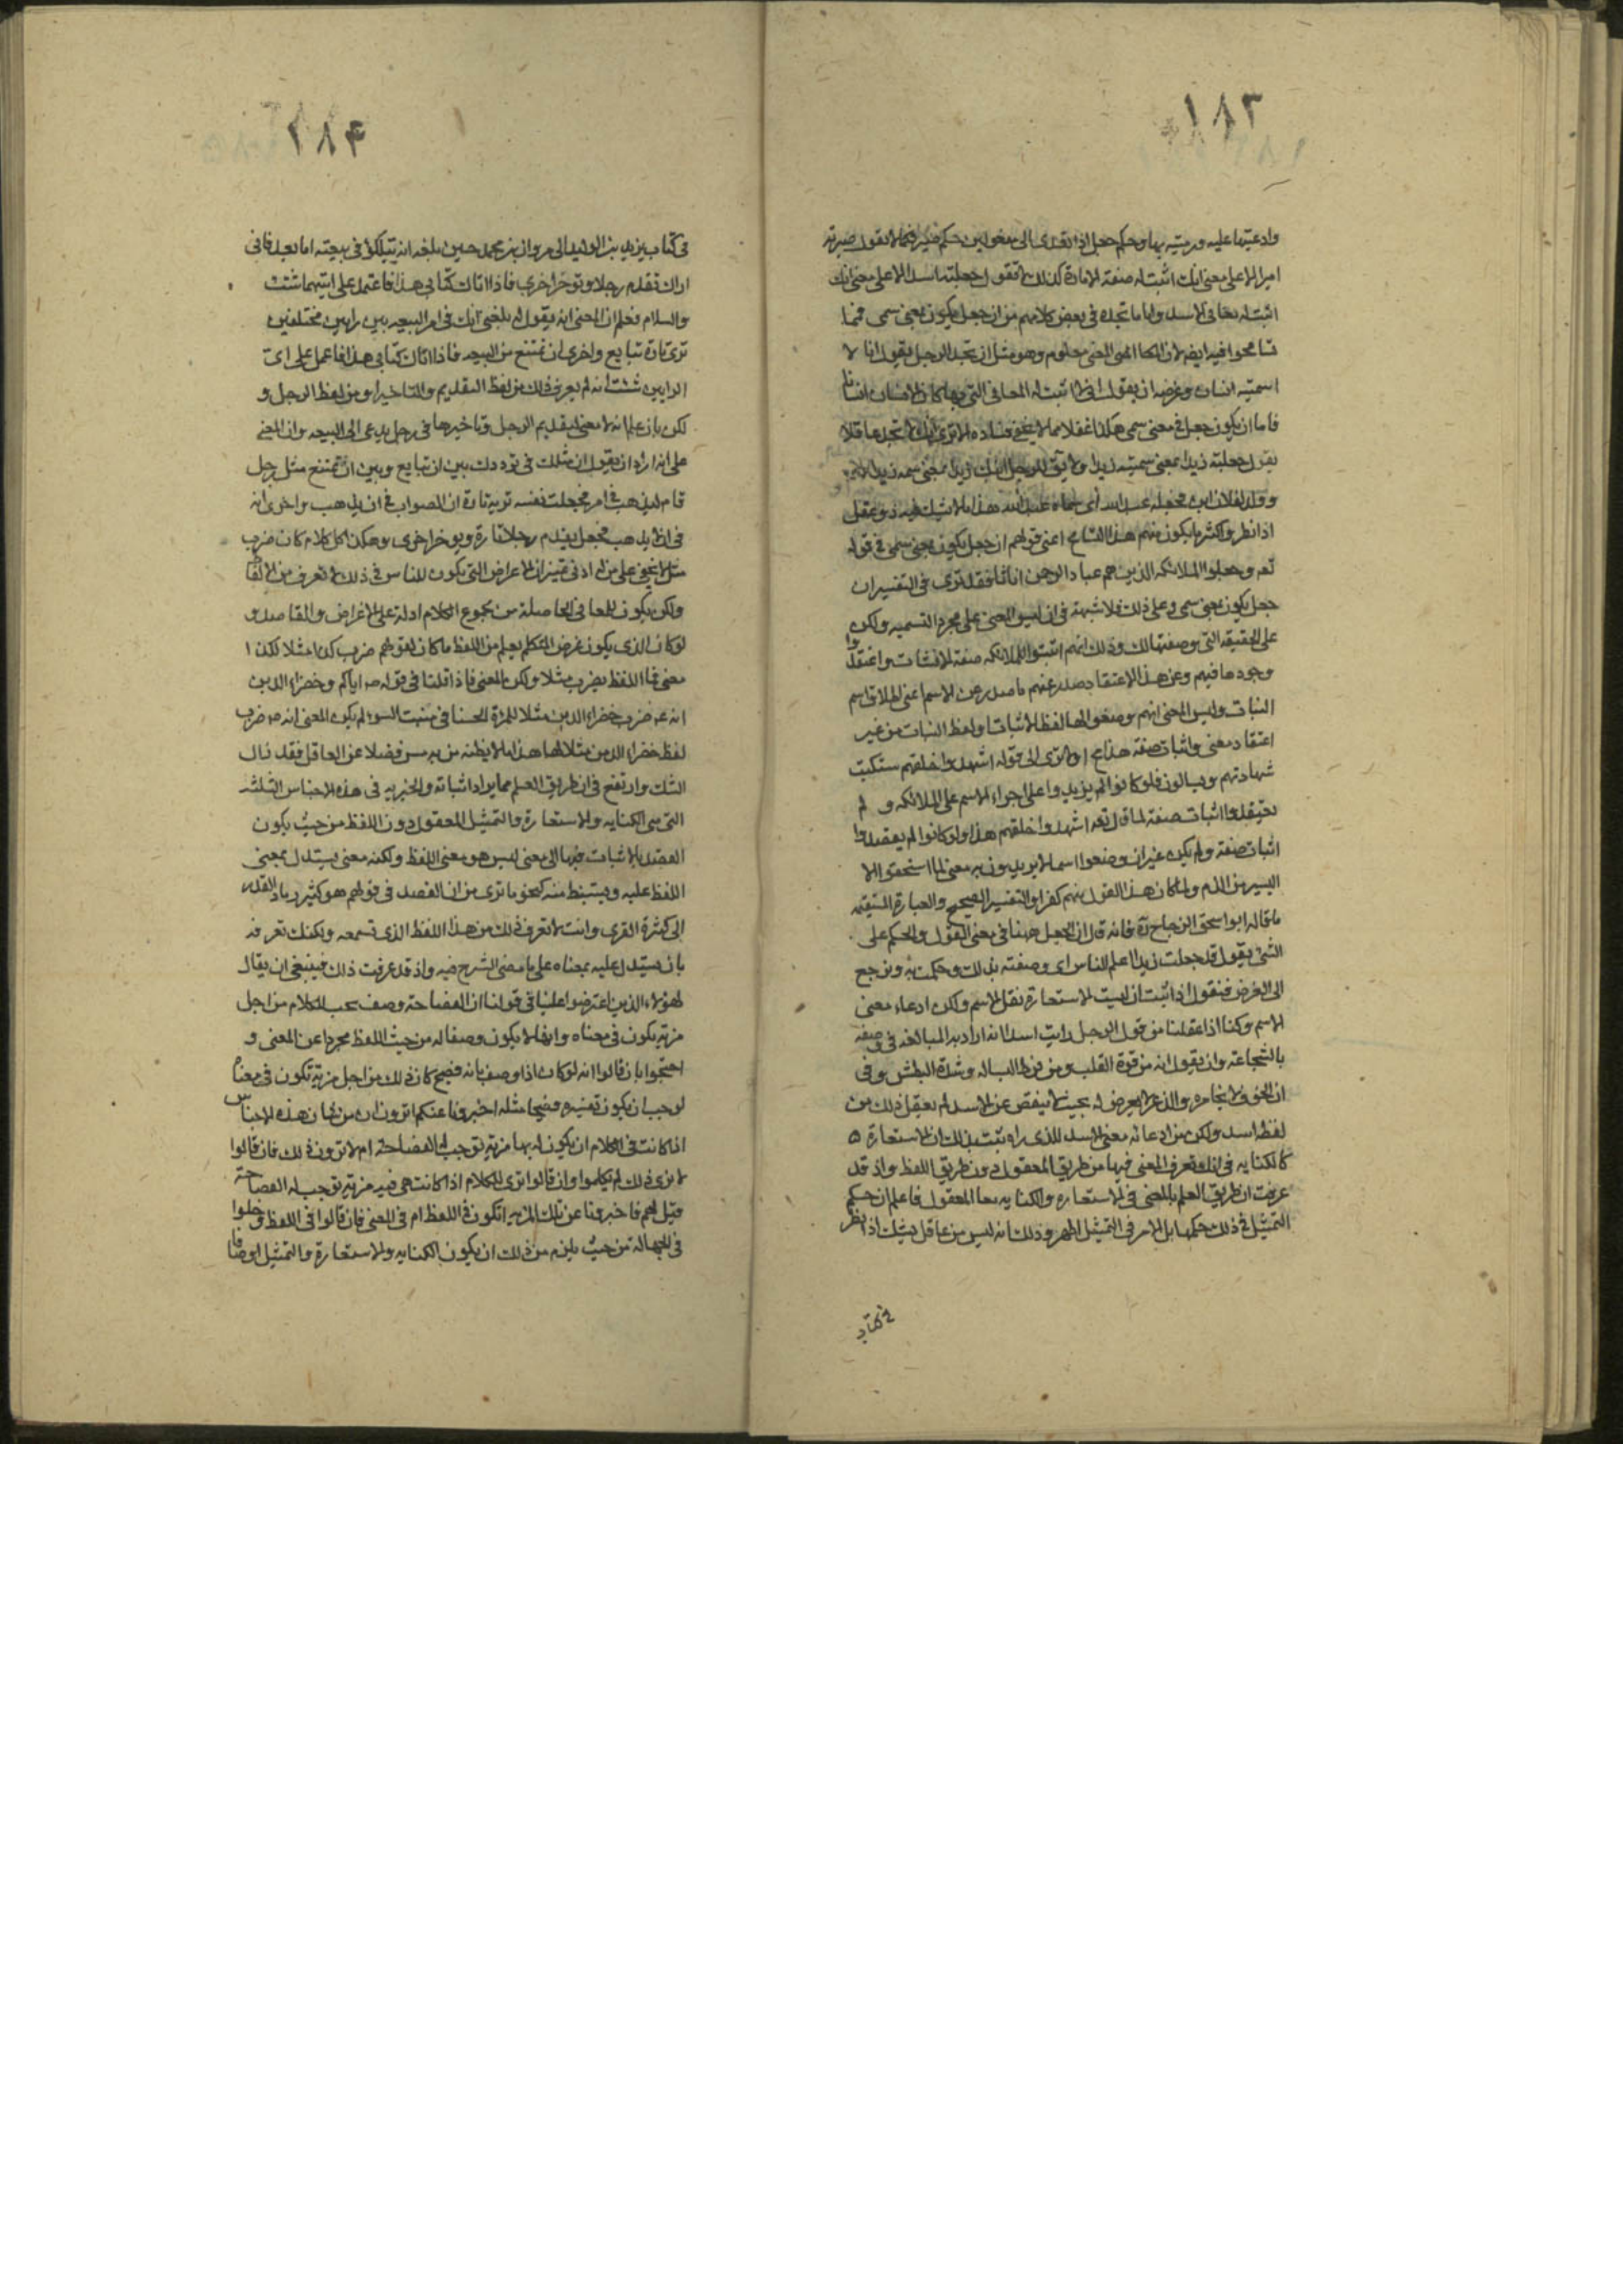 ١٨٣
وادعيتها عليه ورميته بها وحكم جعل اذا تعدى الى مفعولين حكم صير فكما لا تقول صيرته
اميرا الا على معنى انك اثبت له صفة الامارة كذلك لا تقول جعلته اسدا الا على معنى انك
اثبت له معانى الاسد واما ما تجده فى بعض كلامهم من ان جعل يكون بمعنى سمى فمما
تسامحوا فيه ايضا لان المعنى معلوم وهو مثل ان تجد الرجل يقول انا لا
اسميه انسانا وغرضه ان يقول انى لا اثبت له المعانى التى بها كان الانسان انسانا
فاما ان يكون جعل فى معنى سمى هكذا غفلا مما لا يخفى فساده الا ترى انك لا تجد عاقلا
يقول جعلته زيدا بمعنى سميته زيدا ولا يقال للرجل اجعل ابنك زيدا بمعنى سمه زيدا
وولد لفلان ابن فجعله عبد الله اى سماه عبد الله هذا ما لا يشك فيه ذو عقل
اذا نظر واكثر ما يكون منهم هذا التسامح اعنى قولهم ان جعل يكون بمعنى سمى فى قوله
تعه وجعلوا الملائكه الذين هم عباد الرحمن اناثا فقد ترى فى التفسير ان
جعل يكون بمعنى سمى وعلى ذلك فلا شبهة فى ان ليس المعنى على مجرد التسميه ولكن
على الحقيقه التى وصفتها لك وذلك انهم اثبتوا للملائكه صفة الاناث واعتقدوا
وجودها فيهم وعن هذا الاعتقاد صدر عنهم ما صدر من الاسم اعنى اطلاق اسم
البنات وليس المعنى انهم وضعوا لها لفظ الاناث او لفظ البنات من غير
اعتقاد معنى واثبات صفة هذا مح اولا ترى الى قوله اشهدوا خلقهم ستكتب
شهادتهم ويسالون فلو كانوا لم يزيدوا على اجراء الاسم على الملائكه و لم
يعتقدوا اثبات صفة لما قال تعه اشهدوا خلقهم هذا ولو كانوا لم يقصدوا
اثبات صفة ولم يكن غير ان وضعوا اسما لا يريدون به معنى لما استحقوا الا
اليسير من الذم ولما كان هذا القول منهم كفرا والتفسير الصحيح والعبارة المستقيمه
ما قاله ابو اسحق الزجاج ره فانه قال ان الجعل ههنا فى معنى القول والحكم على
الشئ يقول قد جعلت زيدا اعلم الناس اى وصفته بذلك وحكمت به ونرجع
الى الغرض فنقول اذا ثبت ان ليست الاستعارة نقل الاسم ولكن ادعاء معنى
الاسم وكنا اذا عقلنا من قول الرجل رايت اسدا انه اراد به المبالغه فى وصفه
بالشجاعة وان يقول انه من قوة القلب ومن فرط البساله وشدة البطش وفى
ان الخوف لا يخامره والذعر لا يعرض له بحيث لا ينقص عن الاسد لم نعقل ذلك من
لفظ اسد ولكن من ادعائه معنى الاسد الذى راه ثبت بذلك ان الاستعارة
كالكنايه فى انك تعرف المعنى فيها من طريق المعقول دون طريق اللفظ واذ قد
عرفت ان طريق العلم بالمعنى فى الاستعاره والكنايه معا المعقول فاعلم ان حكم
التمثيل فى ذلك حكمهما بل الامر فى التمثيل اظهر وذلك انه ليس من عاقل يشك اذا نظر
فى كتاب
١٨۴
فى كتاب يزيد بن الوليد الى مروان بن محمد حين بلغه انه يتلكؤ فى بيعته اما بعد فانى
اراك تقدم رجلا وتوخر اخرى فاذا اتاك كتابى هذا فاعتمد على ايتهما شئت
والسلام فعلم ان المعنى انه يقول له بلغنى انك فى امر البيعه بين رايين مختلفين
ترى تارة تبايع واخرى ان تمتنع من البيعه فاذا اتاك كتابى هذا فاعمل على اى
الرايين شئت انه لم يعرف ذلك من لفظ التقديم والتاخير او من لفظ الرجل و
لكن بان علم انه لا معنى لتقديم الرجل وتاخيرها فى رجل يدعى الى البيعه وان المعنى
على انه اراد ان يقول ان مثلك فى ترددك بين ان تبايع وبين ان تمتنع مثل رجل
قام ليذهب فى امر فجعلت نفسه تريه تارة ان الصواب فى ان يذهب واخرى انه
فى ان لا يذهب فجعل يقدم رجلا تارة ويوخر اخرى وهكذا كل كلام كان ضرب
مثل لا يخفى على من له ادنى تمييز ان الاغراض التى يكون للناس فى ذلك لا تعرف من الالفاظ
ولكن يكون المعانى الحاصلة من مجموع الكلام ادلة على الاغراض والمقاصد و
لو كان الذى يكون غرض المتكلم يعلم من اللفظ ما كان لقولهم ضرب كذا مثلا لكذا
معنى فما اللفظ يضرب مثلا ولكن المعنى فاذا قلنا فى قوله صه اياكم وخضراء الدمن
انه عه ضرب خضراء الدمن مثلا للمراة الحسنا فى منبت السوء لم يكن المعنى انه صه ضرب
لفظ خضراء الدمن مثلا لها هذا ما لا يظنه من به مس فضلا عن العاقل فقد زال
الشك وارتفع فى ان طريق العلم بما يراد اثباته والخبر به فى هذه الاجناس الثلثه
التى هى الكنايه والاستعارة والتمثيل المعقول دون اللفظ من حيث يكون
القصد بالاثبات فيها الى معنى ليس هو معنى اللفظ ولكنه معنى يستدل بمعنى
اللفظ عليه ويستنبط منه كنحو ما ترى من ان القصد فى قولهم هو كثير رماد القدر
الى كثرة القرى وانت لا تعرف ذلك من هذا اللفظ الذى تسمعه ولكنك تعرفه
بان تستدل عليه بمعناه على ما مضى الشرح فيه واذ قد عرفت ذلك فينبغى ان يقال
لهؤلاء الذين اعترضوا علينا فى قولنا ان الفصاحة وصف تجب للكلام من اجل
مزية تكون فى معناه وانها لا يكون وصفا له من حيث اللفظ مجردا عن المعنى و
احتجوا بان قالوا انه لو كان اذا وصف بانه فصيح كان ذلك من اجل مزية تكون فى معناه
لوجب ان يكون تفسيره فصيحا مثله اخبرونا عنكم اترون ان من شان هذه الاجناس
اذا كانت فى الكلام ان يكون له بها مزية توجب له الفصاحة ام لا ترون ذلك فان قالوا
لا نرى ذلك لم يكلموا وان قالوا نرى للكلام اذا كانت هى فيه مزية توجب له الفصاحة
قيل لهم فاخبرونا عن تلك المزية اتكون فى اللفظ ام فى المعنى فان قالوا فى اللفظ دخلوا
فى الجهالة من حيث يلزم من ذلك ان يكون الكنايه والاستعارة والتمثيل اوصافا